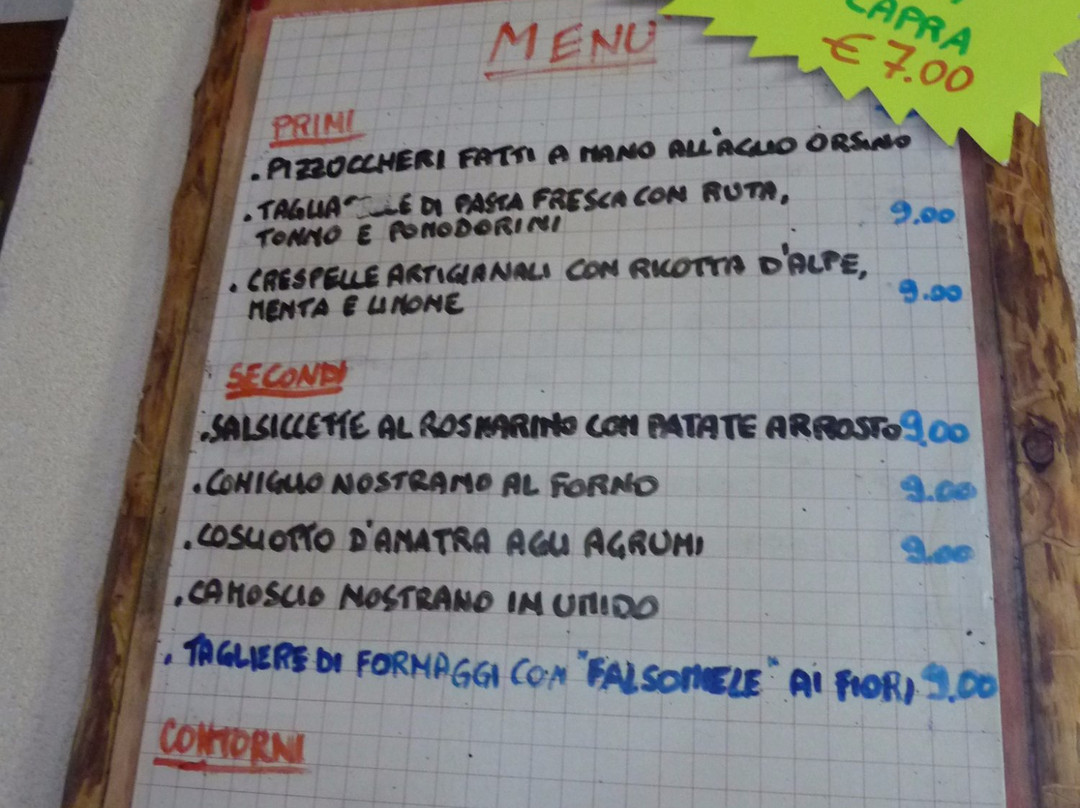 MENU
CAPRA
€ 7.00
PRIMI
. PIZZOCCHERI FATTI A MANO ALL'AGLIO ORSINO
. TAGLIATELLE DI PASTA FRESCA CON RUTA,
TONNO E POMODORINI 9.00
. CRESPELLE ARTIGIANALI CON RICOTTA D'ALPE,
MENTA E LIMONE 9.00
SECONDI
. SALSICCETTE AL ROSMARINO CON PATATE ARROSTO 9,00
. CONIGLIO NOSTRANO AL FORNO 9.00
. COSCIOTTO D'ANATRA AGLI AGRUMI 9.00
. CAMOSCIO NOSTRANO IN UMIDO
. TAGLIERE DI FORMAGGI CON "FALSOMIELE" AI FIORI 9.00
CONTORNI